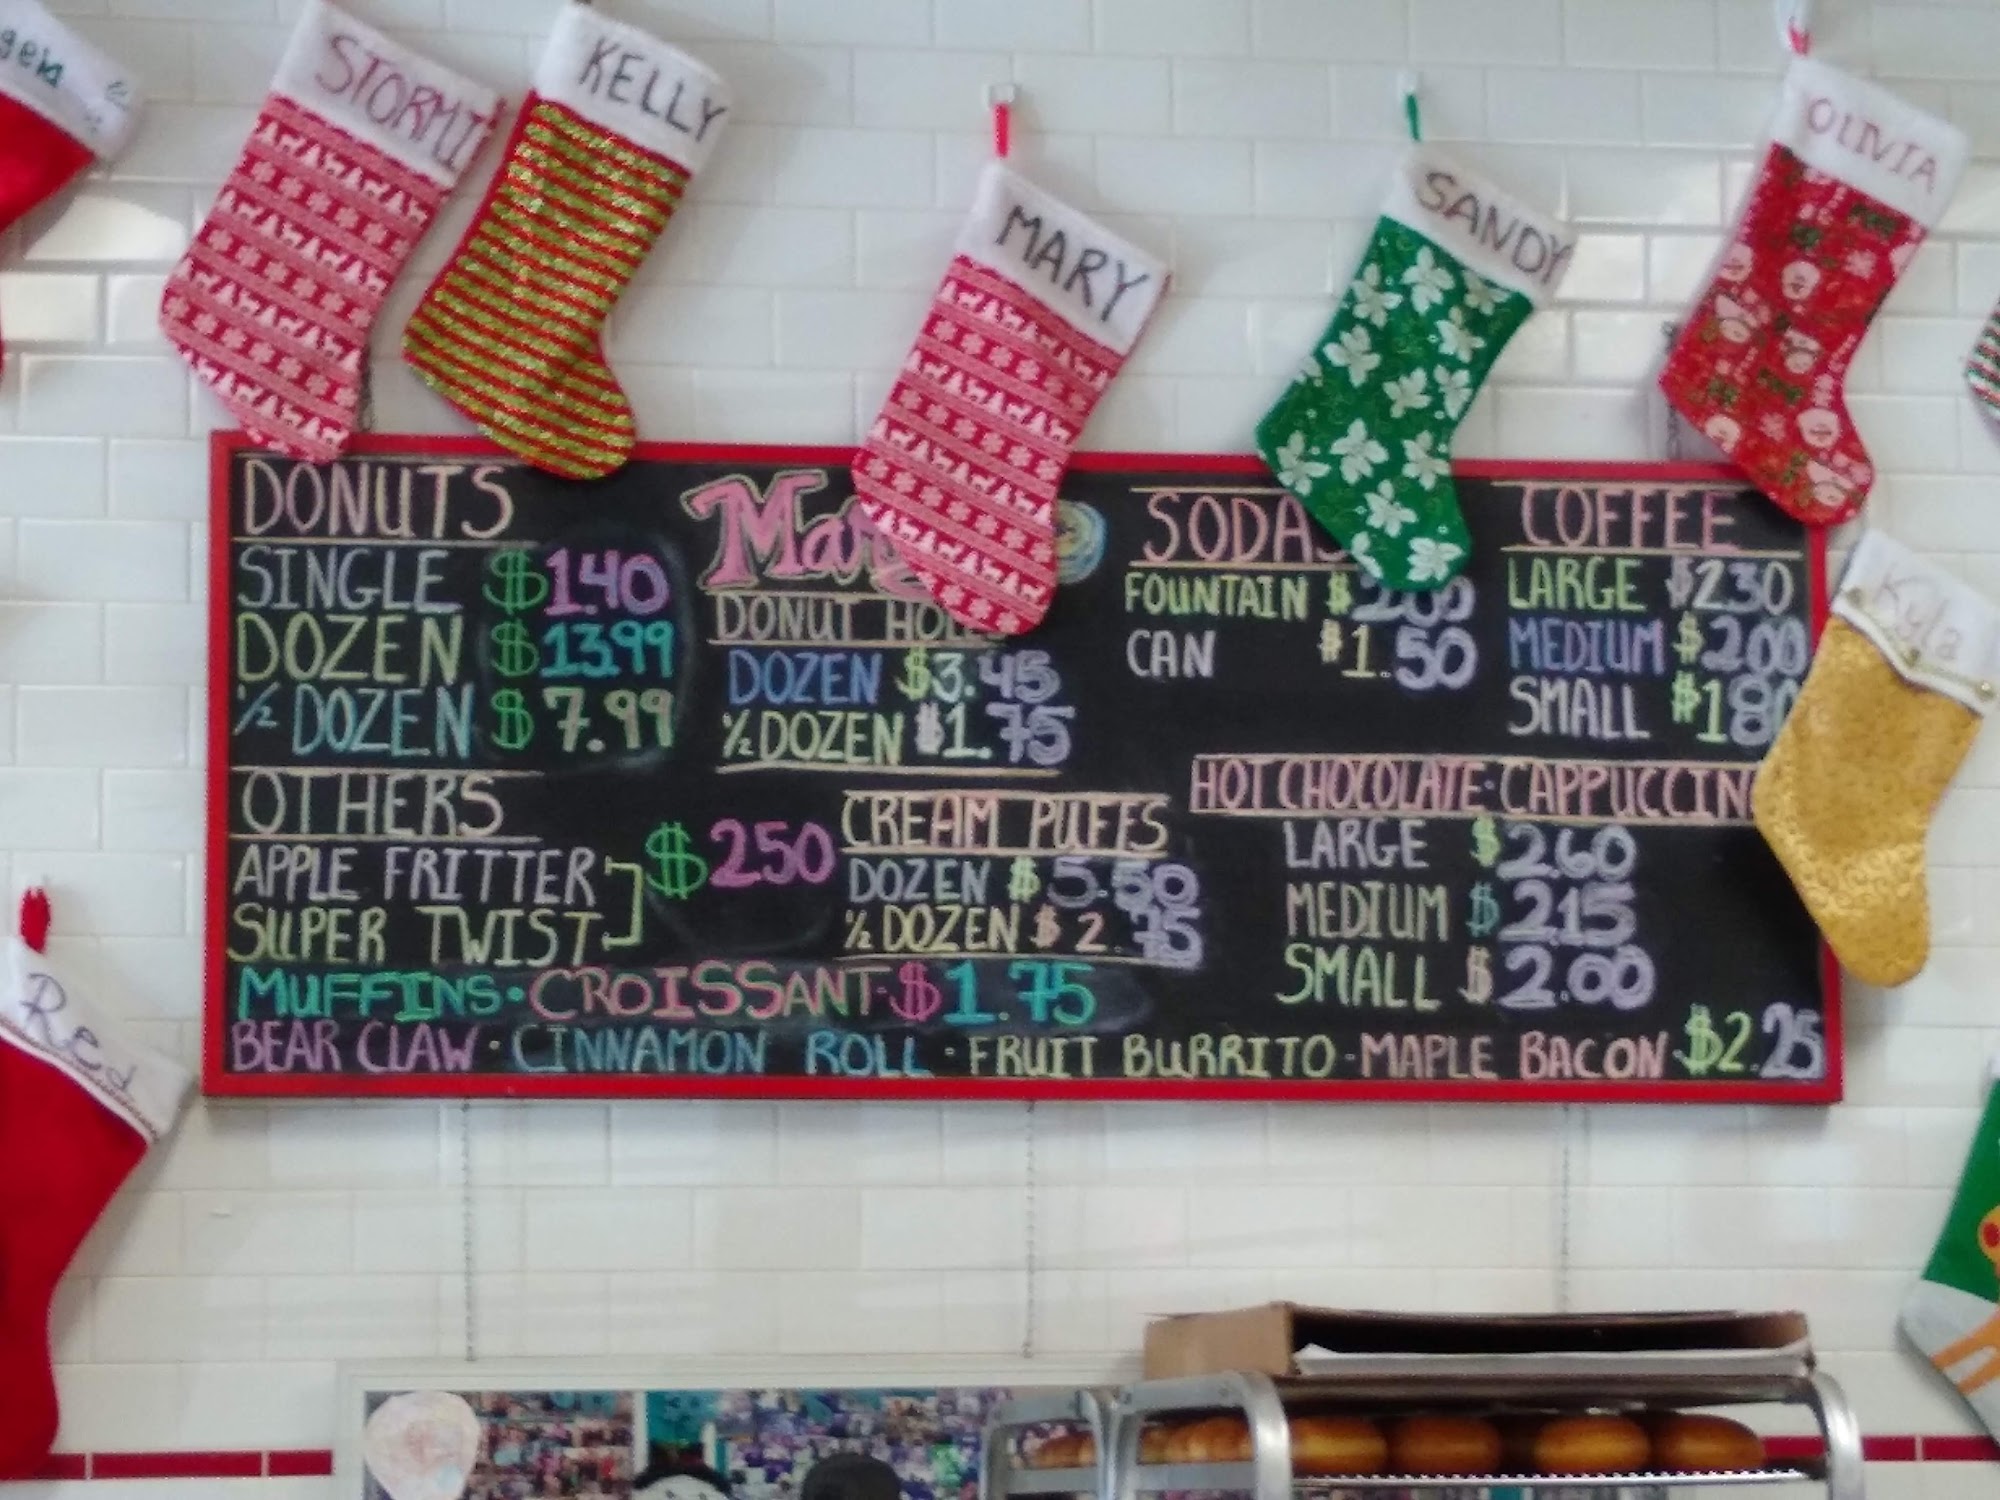 STORMI
KELLY
MARY
SANDY
OLIVIA
Kyla
Red
DONUTS
SINGLE $1.40
DOZEN $13.99
1/2 DOZEN $7.99
OTHERS
APPLE FRITTER
SUPER TWIST
$250
DONUT
DOZEN $3.45
1/2 DOZEN $1.75
CREAM PUFFS
DOZEN $5.50
1/2 DOZEN $2.75
SODAS
FOUNTAIN $2.00
CAN $1.50
COFFEE
LARGE $2.30
MEDIUM $2.00
SMALL $1.80
HOT CHOCOLATE · CAPPUCCIN
LARGE $2.60
MEDIUM $2.15
SMALL $2.00
MUFFINS · CROISSANT · $1.75
BEAR CLAW · CINNAMON ROLL · FRUIT BURRITO · MAPLE BACON $2.25